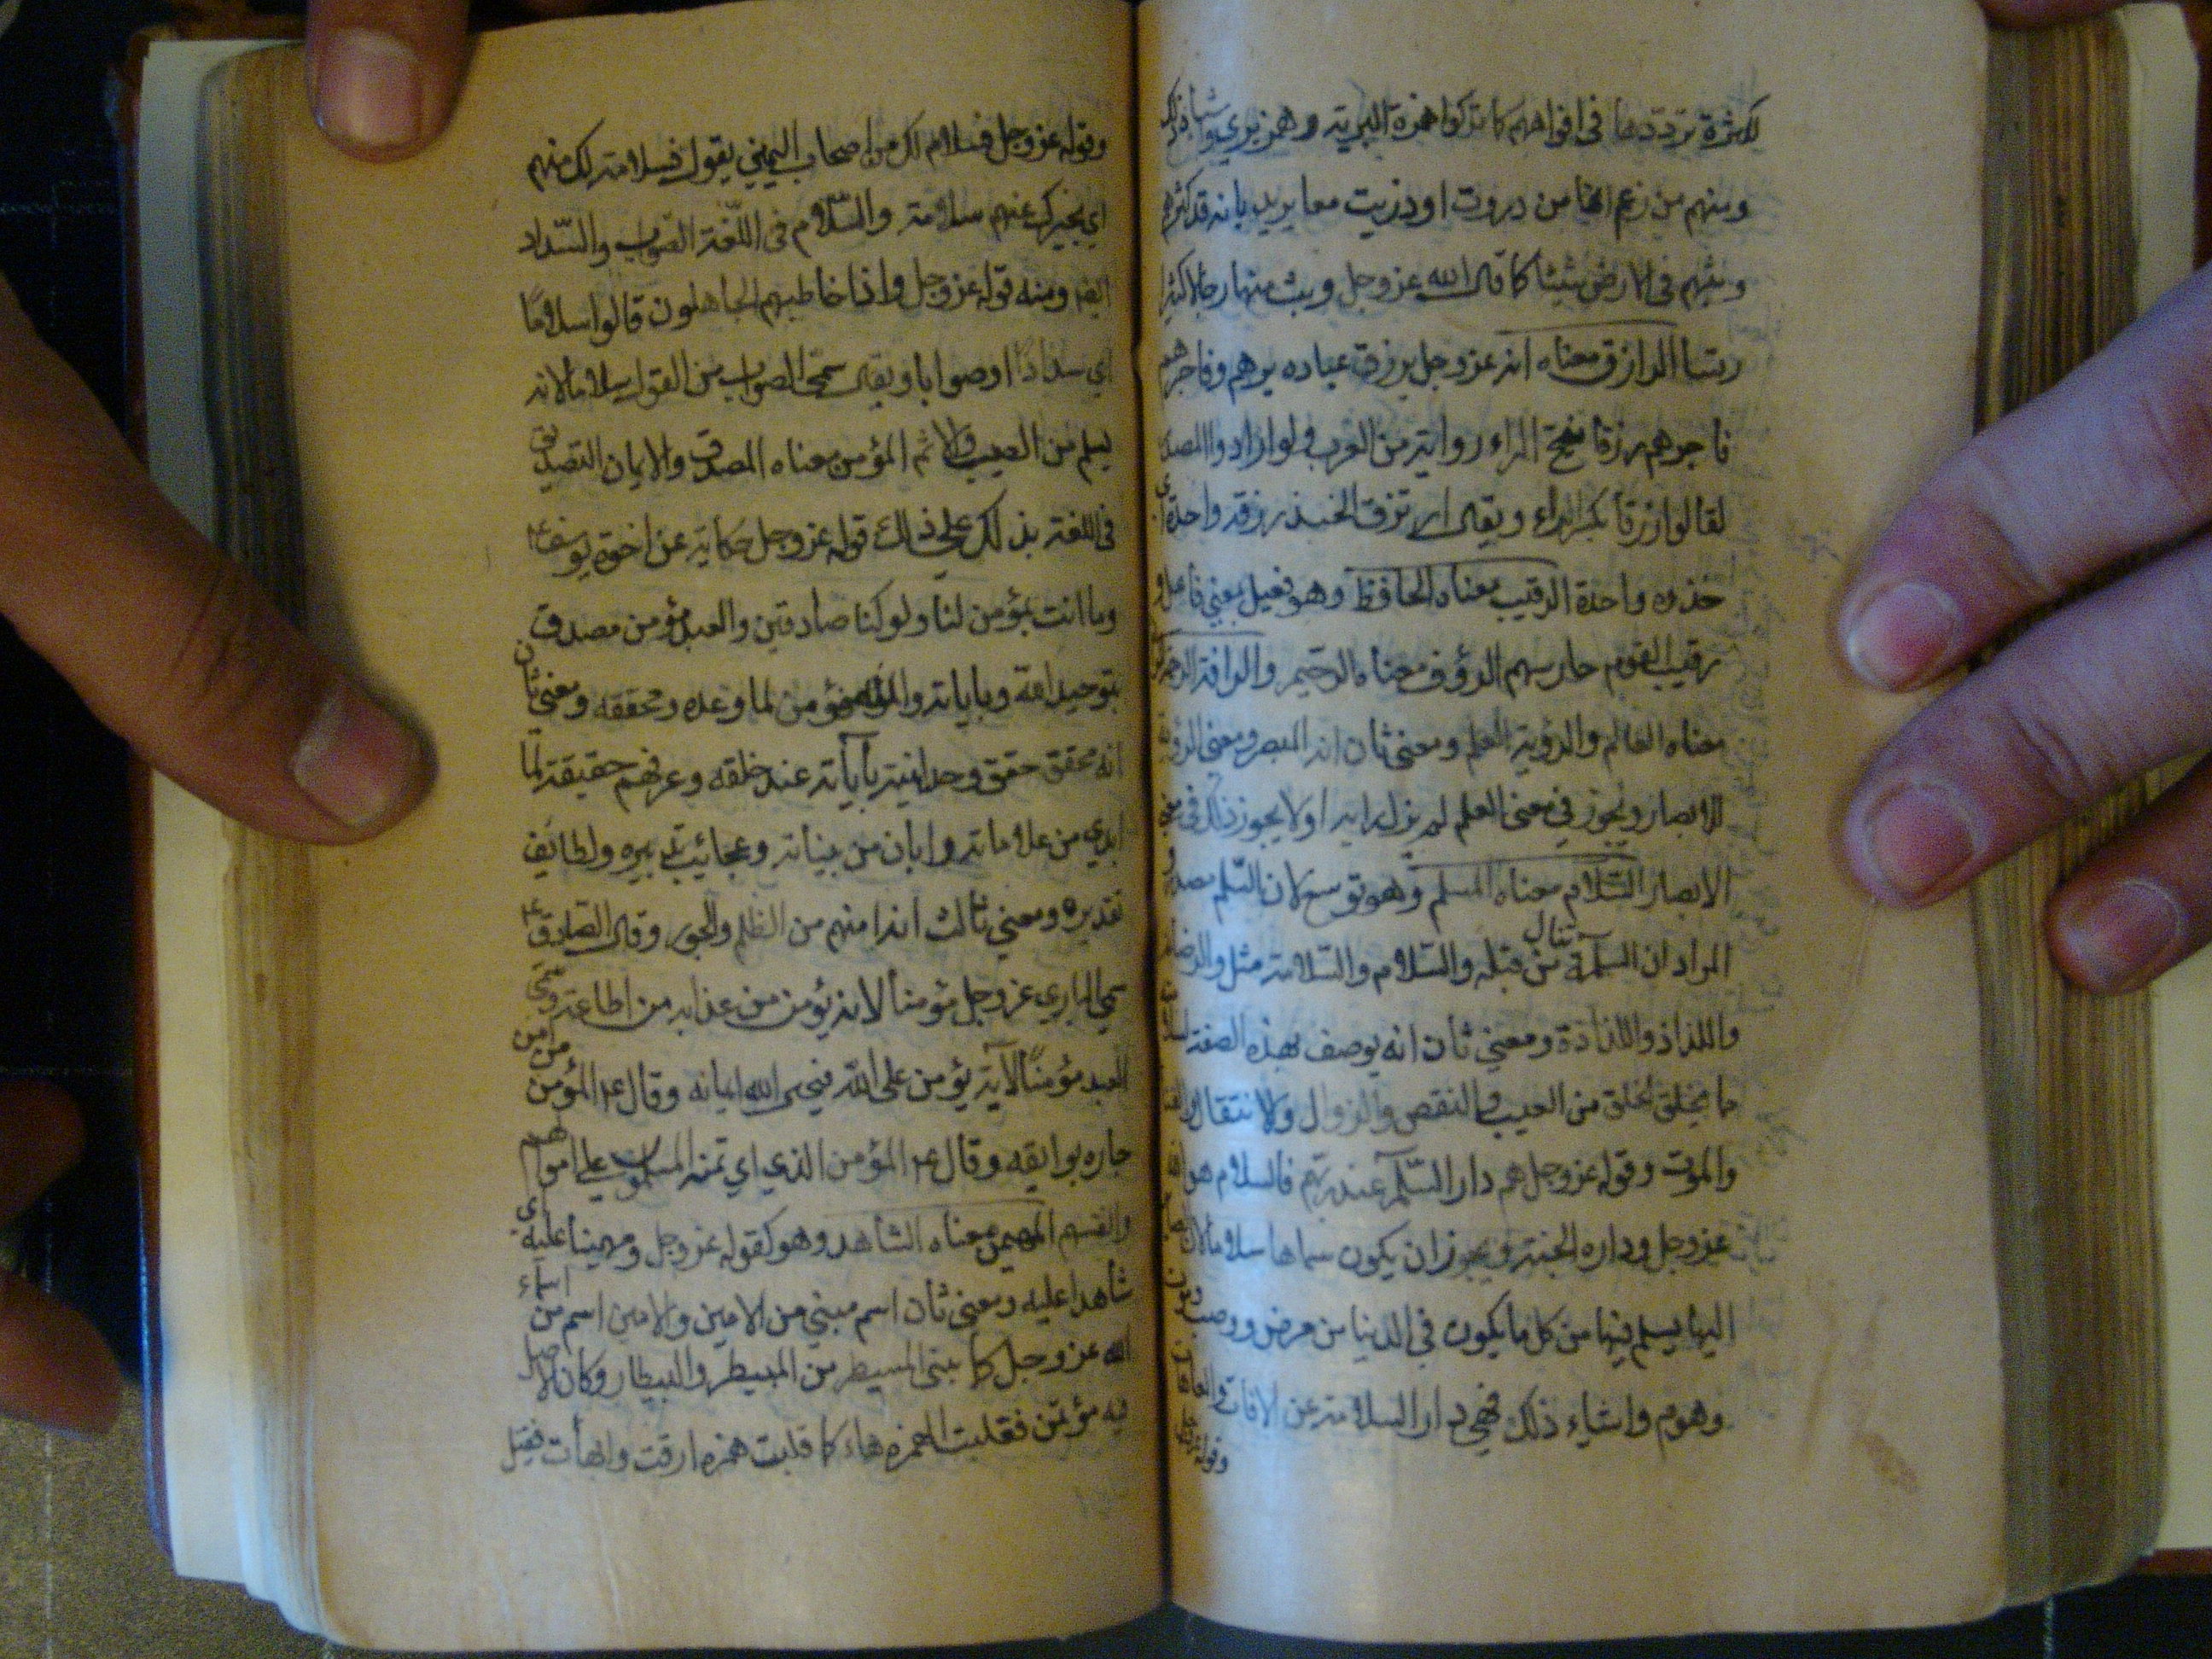 لكثرة ترددها في افواههم كما تركوا همزة البرية وهمز بري واشباه ذلك
ومنهم من زعم انها من ذروت او ذريت معا يريد بانه قد كثرهم
وبثهم في الارض بثا كما قال الله عز وجل وبث منهما رجالا كثيرا
الرازق معناه انه عز وجل يرزق عباده برهم وفاجرهم
فاجرهم رزقا بفتح الراء رواية من العرب ولو ارادوا المصدر
لقالوا رزقا بكسر الراء ويقال ارتزق الجند رزقة واحدة اي
خذوه واحدة الرقيب معناه الحافظ وهو فعيل بمعنى فاعل و
رقيب القوم حارسهم الرؤف معناه الرحيم والرافة الرحمة
معناه العالم والرؤية العلم ومعنى ثان انه المبصر ومعنى الرؤية
الابصار ويجوز في معنى العلم لم يزل رايا ولا يجوز ذلك في معنى
الابصار السّلام معناه المسلم وهو توسع لان السّلم مصدر و
المراد ان السلامة تنال من قبله والسّلام والسّلامة مثل والرضاع
واللذاذ واللذاذة ومعنى ثان انه يوصف بهذه الصفة
ما يخلق الخلق من العيب والنقص والزوال والانتقال
والموت وقوله عز وجل لهم دار السّلم عند ربهم فالسلام هو الله
عز وجل وداره الجنة ويجوز ان يكون سماها سلاما لان
اليها يسلم فيها من كل ما يكون في الدنيا من مرض ووصب
وهوم واشباه ذلك فهي دار السلامة من الافات والعاهات
وقوله عز وجل
وقوله عز وجل فسلام لك من اصحاب اليمين يقول فسلامة لك منهم
اي يخبرك عنهم سلامة والسّلام في اللّغة الصواب والسّداد
ايضا ومنه قوله عز وجل واذا خاطبهم الجاهلون قالوا سلامًا
اي سدادًا وصوابا ويقال سمى الصواب من القول سلاما لانه
يسلم من العيب والاثم المؤمن معناه المصدق والايمان التصديق
في اللغة يدلك على ذلك قوله عز وجل حكاية عن اخوة يوسف ع
وما انت بمؤمن لنا ولو كنا صادقين والعبد مؤمن مصدق
بتوحيد الله وباياته والله مؤمن لما وعده ومحققه ومعنى ثان
انه محقق حقق وحدانيته بآياته عند خلقه وعرفهم حقيقته لما
ابدى من علاماته وابان من بيناته وعجائب تدبيره ولطائف
تقديره ومعنى ثالث انه امنهم من الظلم والجور وقال الصادق ع
سمي الباري عز وجل مؤمنا لانه يؤمن من عذابه من اطاعه وسمي
العبد مؤمنًا لانه يؤمن على الله فيجيز الله ايمانه وقال ع المؤمن من امن
جاره بوايقه وقال ع المؤمن الذي ايتمنه المسلمون على اموالهم
وانفسهم المهيمن معناه الشاهد وهو كقوله عز وجل ومهيمنا عليه اي
شاهدا عليه ومعنى ثان اسم مبني من الامين والامين اسم من اسماء
الله عز وجل كما بنى المبيطر من البيطر والبيطار وكان الاصل
فيه مؤيمن فقلبت الهمزة هاء كما قلبت همزة ارقت وايهات فقيل